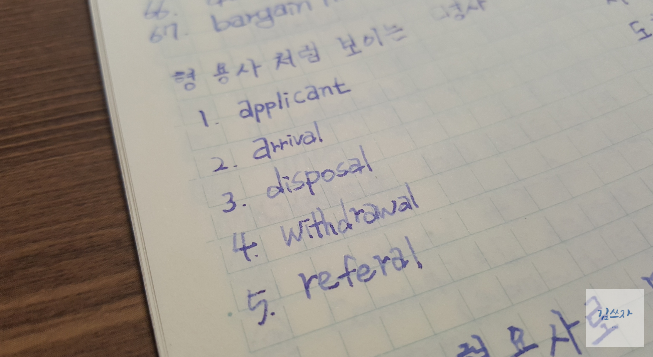 66.
67. bargain
형용사 처럼 보이는 명사
1. applicant
2. arrival
3. disposal
4. withdrawal
5. referal
형용사로